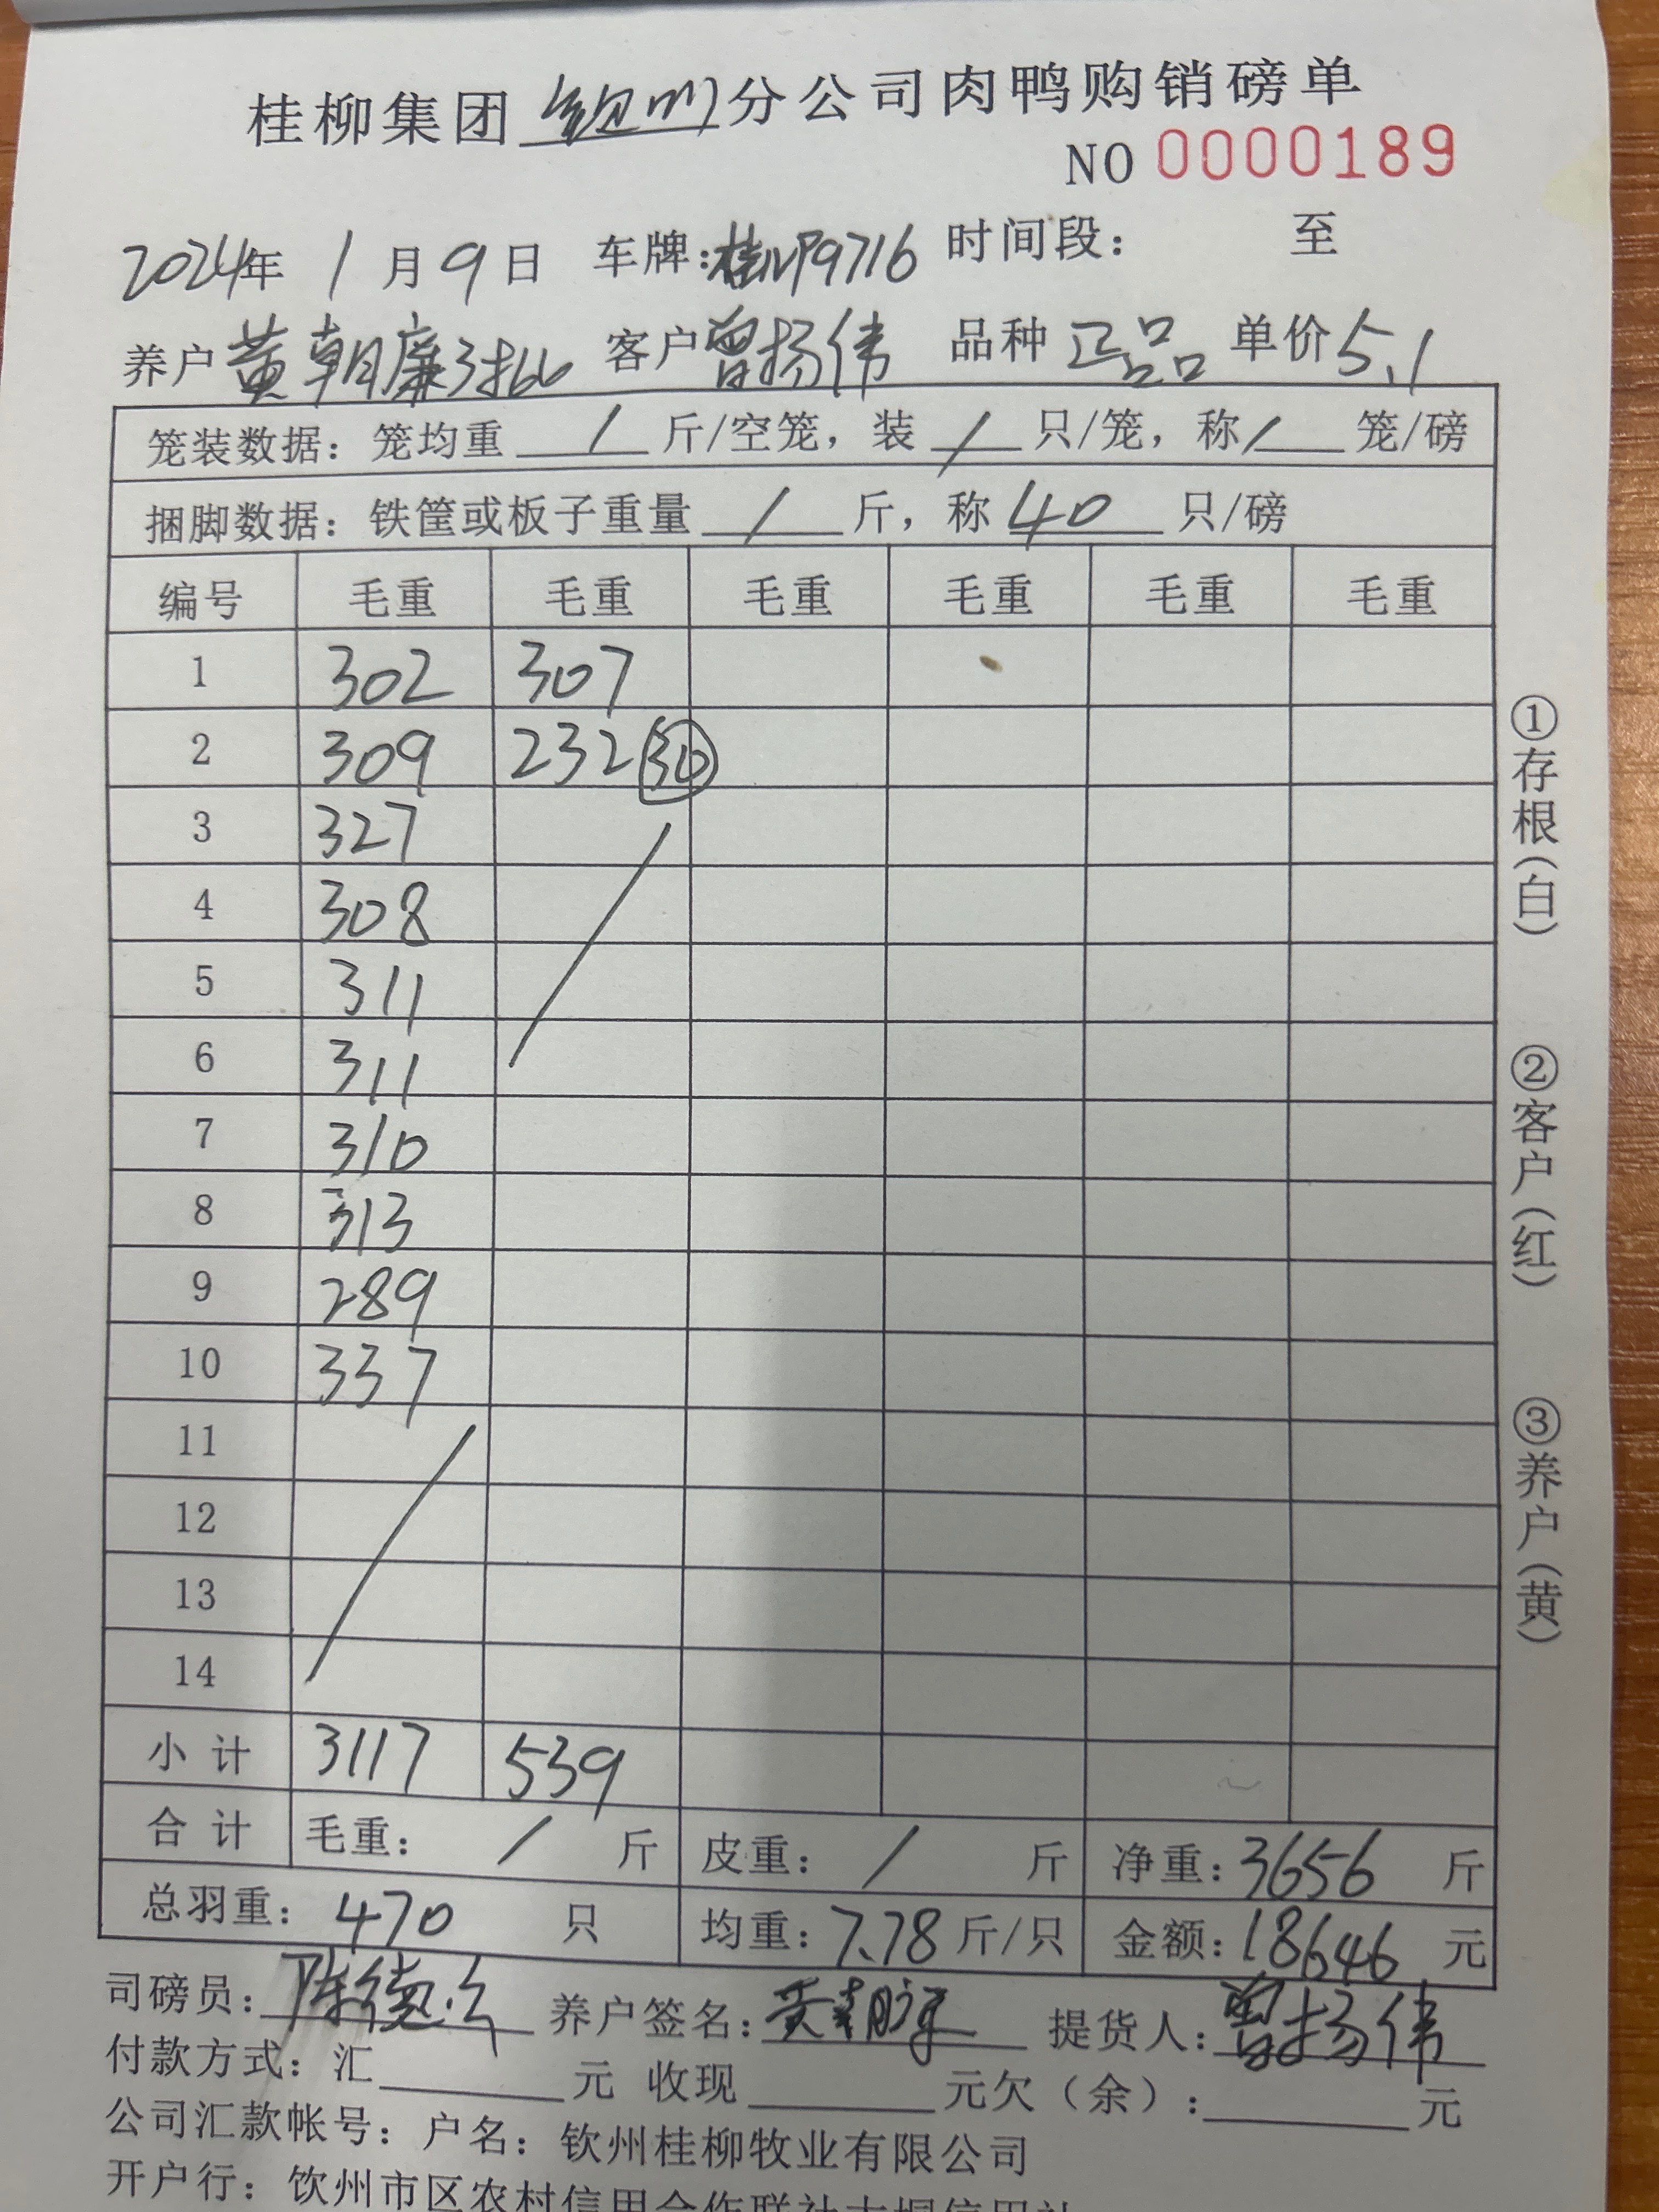 桂柳集团钦州分公司肉鸭购销磅单
NO 0000189
2024年 1 月 9 日 车牌: 9716 时间段: 至
养户 黄朝廉 客户 曾扬伟 品种 正品 单价 5.1
笼装数据: 笼均重 / 斤/空笼, 装 / 只/笼, 称 / 笼/磅
捆脚数据: 铁筐或板子重量 / 斤, 称 40 只/磅
编号 毛重 毛重 毛重 毛重 毛重 毛重
1 302 307
2 309 232 30
3 327
4 308
5 311
6 311
7 310
8 313
9 289
10 337
11
12
13
14
小计 3117 539
合计 毛重: / 斤 皮重: / 斤 净重: 3656 斤
总羽重: 470 只 均重: 7.78 斤/只 金额: 18646 元
司磅员: 养户签名: 提货人: 曾扬伟
付款方式: 汇 元 收现 元欠(余): 元
公司汇款帐号: 户名: 钦州桂柳牧业有限公司
开户行: 钦州市区农村信用合作联社大垌信用社
①存根(白) ②客户(红) ③养户(黄)